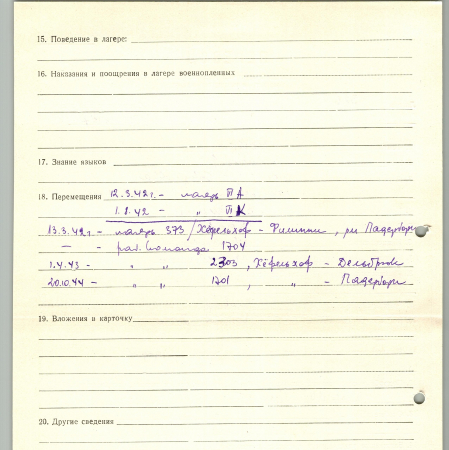 15. Поведение в лагере:
16. Наказания и поощрения в лагере военнопленных
17. Знание языков
18. Перемещения 12.3.42 г. - лагерь П А
1.1.42 - " П К
13.3.42 г. - лагерь 373/Хёвельхоф - , Падерборн
— - раб. Команда 1704
1.4.43 - " " 2303, Хёфельхоф - Дельбрюк
20.10.44 - " " 1701, " - Падерборн
19. Вложения в карточку
20. Другие сведения